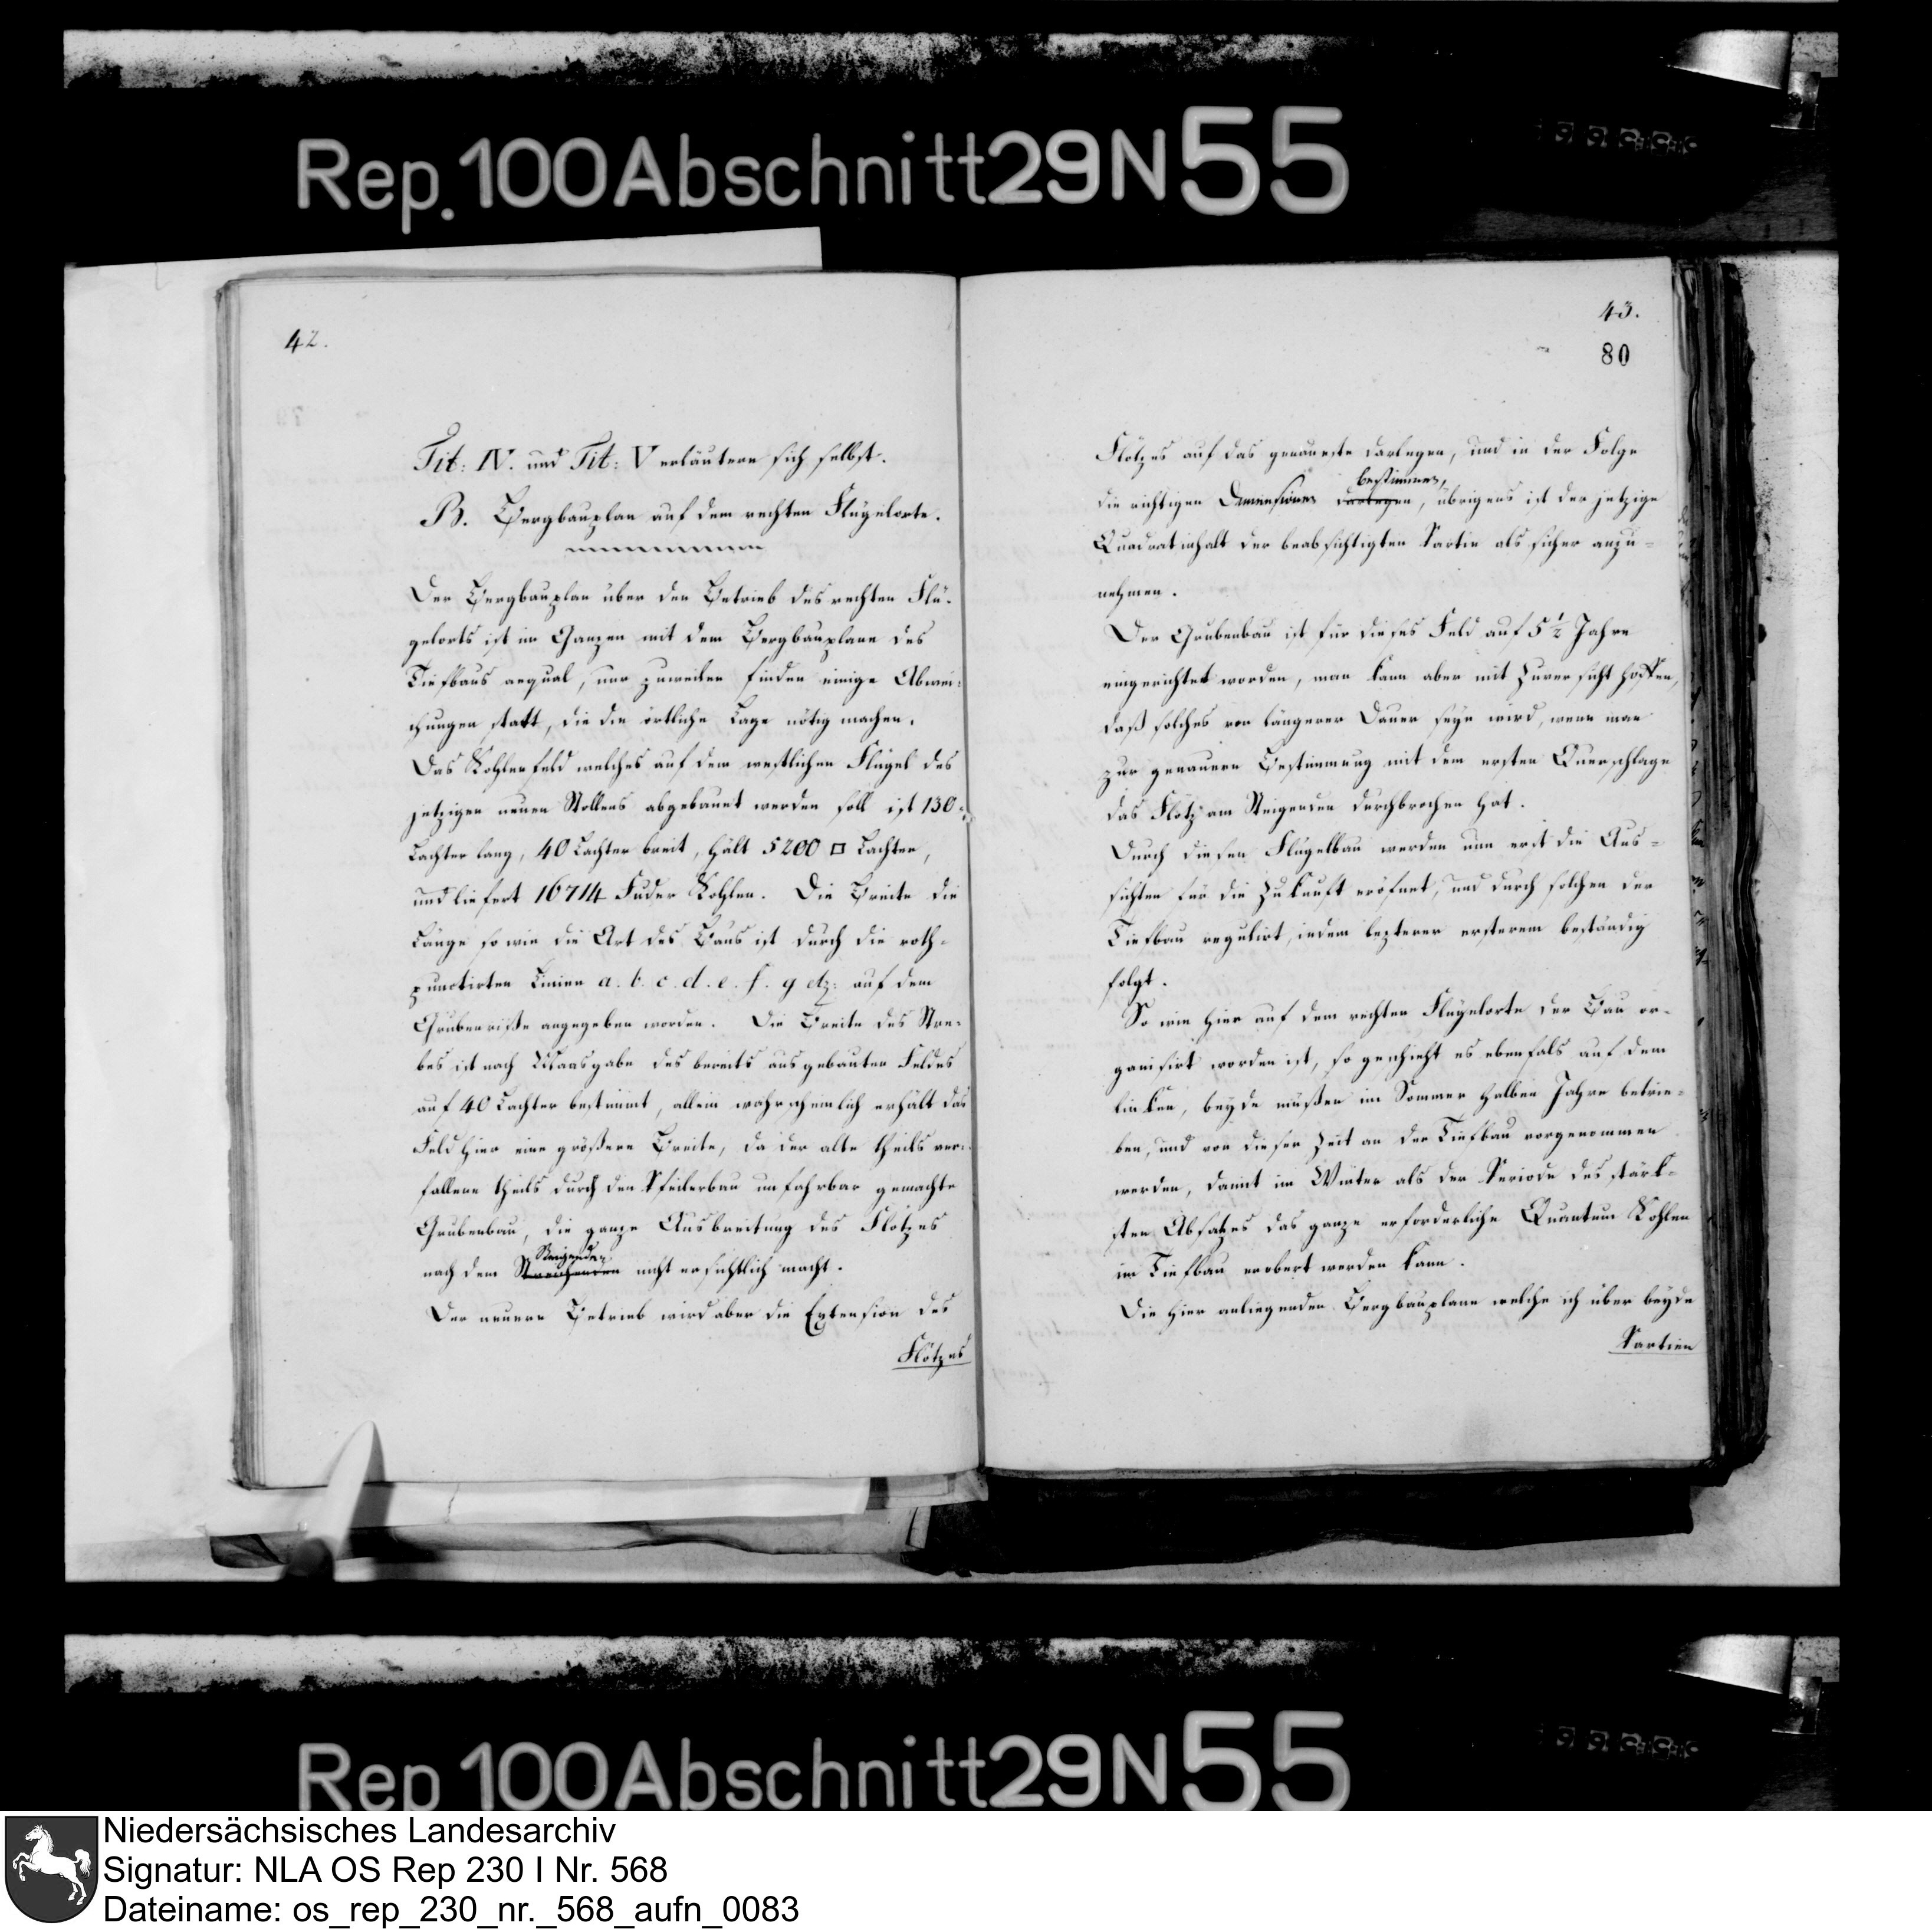 Rep. 100 Abschnitt 29 N 55
42.
Tit: IV. und Tit: V erläutern sich selbst.
B. Bergbauplan auf dem rechten Flügelorte.
Der Bergbauplan über den Betrieb des rechten Flü-
gelorts ist im Ganzen mit dem Bergbauplane des
Tiefbaus aequal, nur zuweilen finden einige Abwei-
chungen statt, die die örtliche Lage nötig machen.
Das Kohlenfeld welches auf dem westlichen Flügel des
jetzigen neuen Stollens abgebauet werden soll ist 130
Lachter lang, 40 Lachter breit, hält 5200 □ Lachter,
und liefert 16714 Fuder Kohlen. Die Breite die
Länge so wie die Art des Baus ist durch die roth-
punctirten Linien a. b. c. d. e. f. g etz: auf dem
Grubenriße angegeben worden. Die Breite des Stre-
bes ist nach Maasgabe des bereits ausgebauten Feldes
auf 40 Lachter bestimmt, allein wahrscheinlich erhält das
Feld hier eine größere Breite, da der alte theils ver-
fallene theils durch den Pfeilerbau unfahrbar gemachte
Grubenbau, die ganze Ausbreitung des Flötzes
Steigenden
nach dem Streichenden nicht ersichtlich macht.
Der neuere Betrieb wird aber die Extension des
Flötzes
43.
80
Flötzes auf das genaueste darlegen, und in der Folge
bestimmen,
die richtigen Dimensionen darlegen, übrigens ist der jetzige
Quadratinhalt der beabsichtigten Partie als sicher anzu-
nehmen.
Der Grubenbau ist für dieses Feld auf 5 1/2 Jahre
eingerichtet worden, man kann aber mit Zuversicht hoffen,
daß solches von längerer Dauer seyn wird, wenn man
zur genauern Bestimmung mit dem ersten Querschlage
das Flötz am Steigenden durchbrochen hat.
Durch diesen Flügelbau werden nun erst die Aus-
sichten für die Zukunft eröfnet, und durch solchen der
Tiefbau regulirt, indem lezterer ersterem beständig
folgt.
So wie hier auf dem rechten Flügelorte der Bau or-
ganisirt worden ist, so geschieht es ebenfals auf dem
linken, beyde müßen im Sommer halben Jahre betrie-
ben, und von dieser Zeit an der Tiefbau vorgenommen
werden, damit im Winter als der Periode des stärk-
sten Absatzes das ganze erforderliche Quantum Kohlen
im Tiefbau erobert werden kann.
Die hier anliegenden Bergbauplane welche ich über beyde
Partien
Rep 100 Abschnitt 29 N 55
Niedersächsisches Landesarchiv
Signatur: NLA OS Rep 230 I Nr. 568
Dateiname: os_rep_230_nr._568_aufn_0083